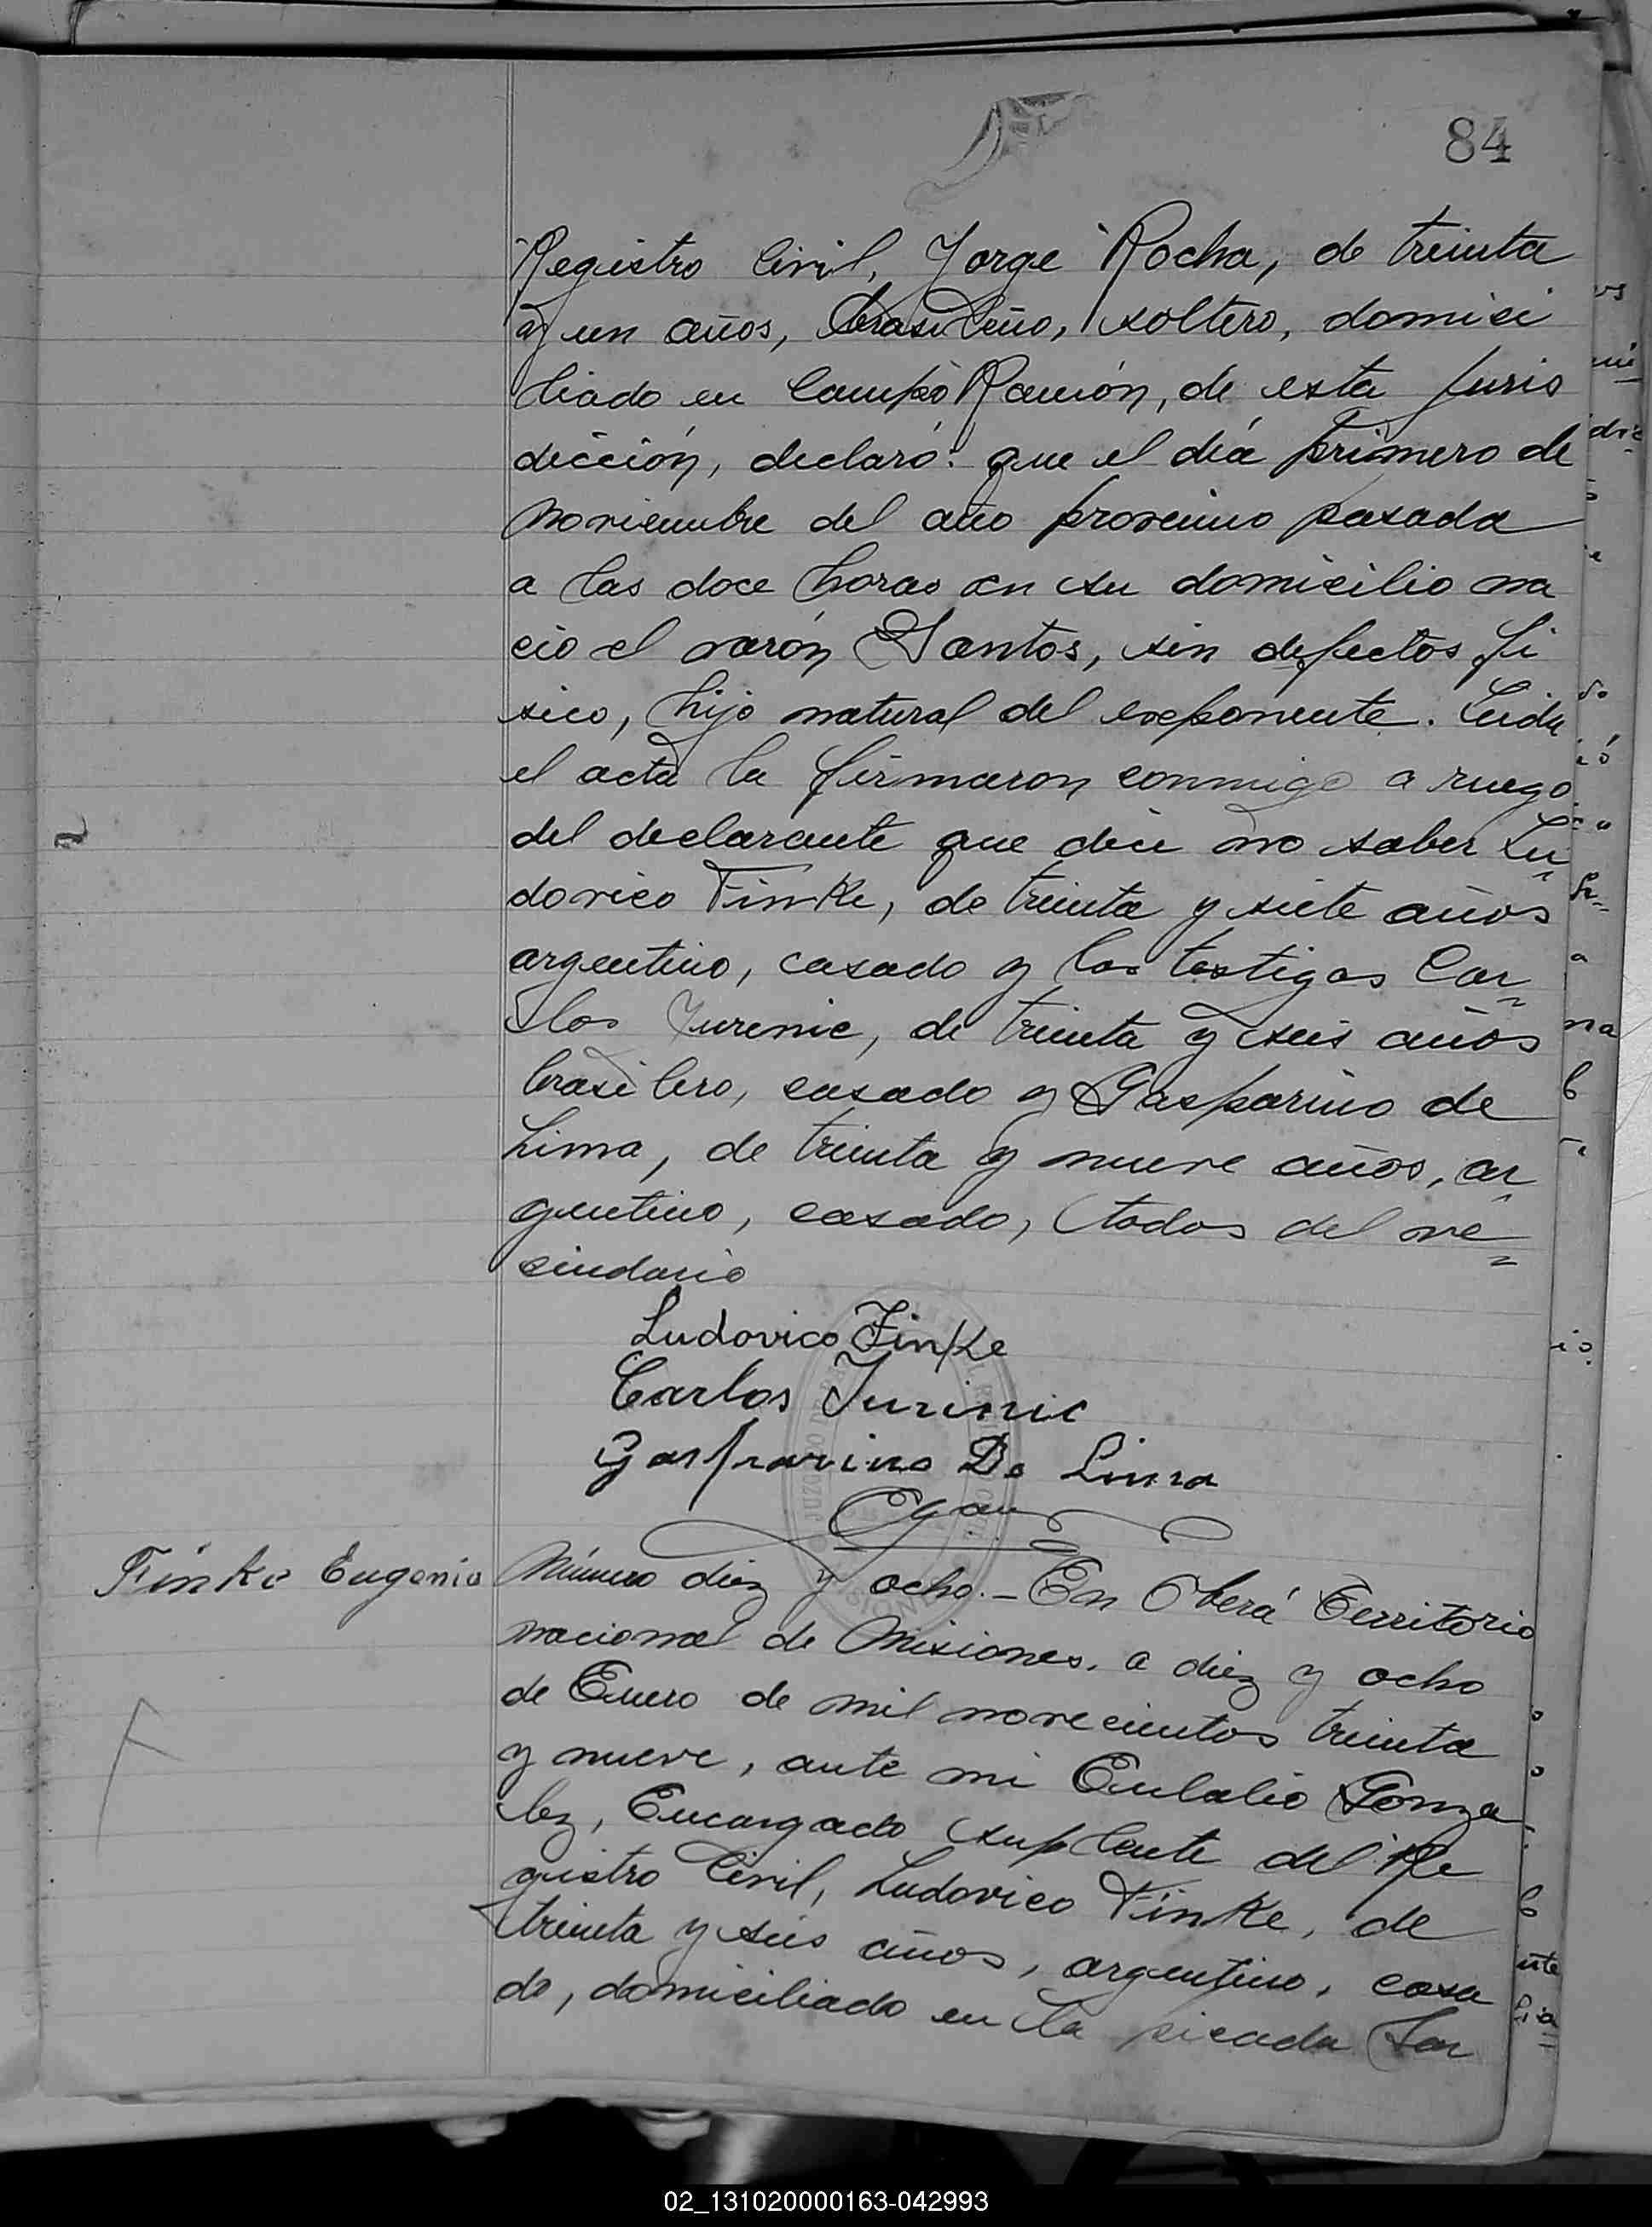 84
Registro Civil, Jorge Rocha, de treinta
y un años, brasileño, soltero, domici
liado en Campo Ramón, de esta juris
dicción, declaró: que el día primero de
Noviembre del año proximo pasado
a las doce horas en su domicilio na
cio el varón Santos, sin defectos fi
sico, hijo natural del exponente. Leida
el acta la firmaron conmigo a ruego
del declarante que dice no saber Lu
dovico Finke, de treinta y siete años
argentino, casado y los testigos Car
los Jurinic, de treinta y seis años
brasilero, casado y Gasparino de
Lima, de treinta y nueve años, ar
gentino, casado, todos del ve
cindario
Ludovico Finke
Carlos Jurinic
Gasparino De Lima
Finke Eugenio
Número diez y ocho.- En Oberá Territorio
nacional de Misiones, a diez y ocho
de Enero de mil novecientos treinta
y nueve, ante mi Eulalio Gonza
lez, Encargado suplente del Re
gistro Civil, Ludovico Finke, de
treinta y seis años, argentino, casa
do, domiciliado en la picada San
02_131020000163-042993